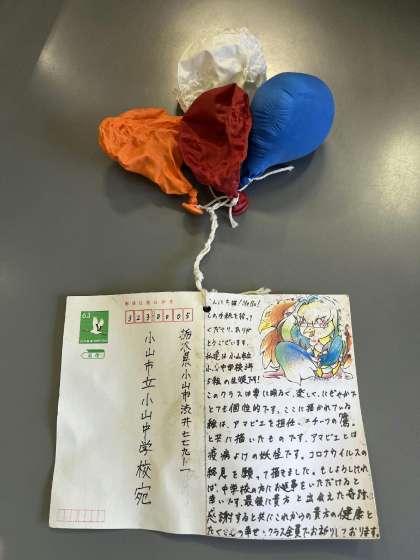 63
返信
3230805
栃木県小山市渋井七七九-一
小山市立小山中学校宛
こんにち猫!Hello!
この手紙を拾って
くださり、ありが
とうございます。
私達は小山市立
小山中学校3年
5組の生徒です!
このクラスは常に明るく、楽しく、にぎやかで
とても個性的です。ここに描かれている
絵は、アマビエを担任、モチーフの「鷹」
と共に描いたものです。アマビエとは
疫病よけの妖怪です。コロナウイルスの
終息を願って描きました。もしよろしけれ
ば、中学校の方にお返事をいただけると
幸いです。最後に貴方と出会えた奇跡に
感謝すると共にこれからの貴方の健康と
たくさんの幸せ、クラス全員でお祈りしております。